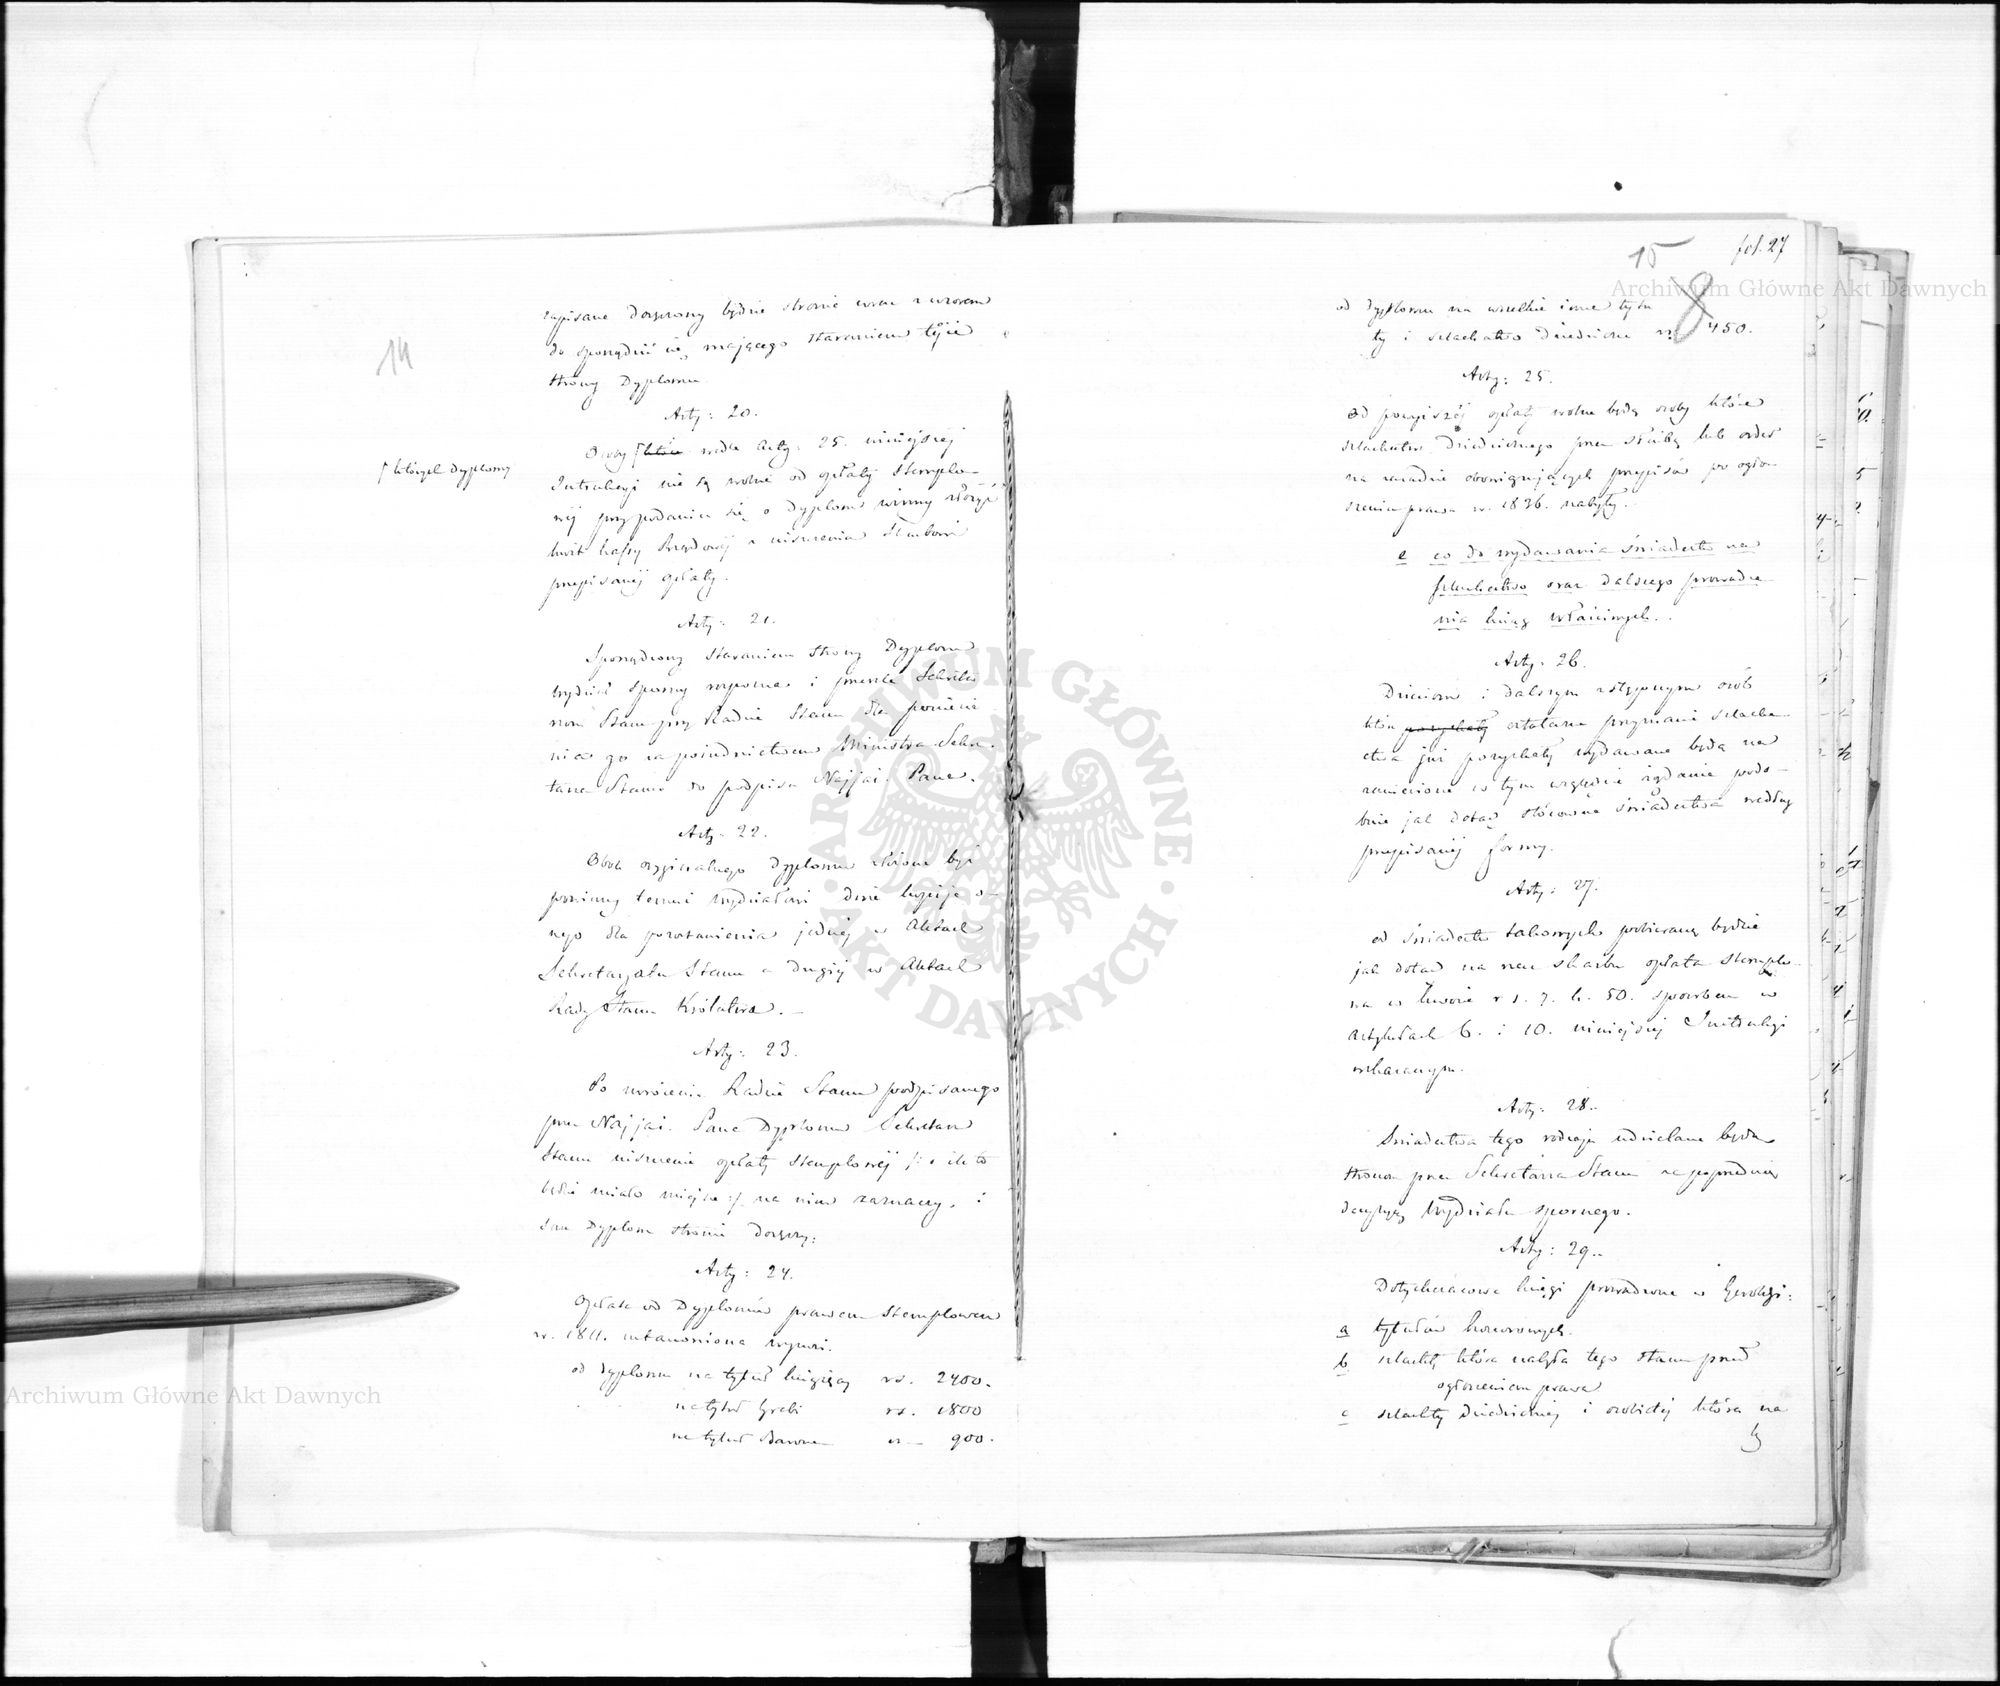 14
zapisane doręczony będzie stronie wraz z wzorem
do sporządzić się mającego staraniem tejże
strony Dyplomu.
Arty: 20.
Osoby które wedle Arty: 25. niniejszej
których dyplomy
Instrukcyi nie są wolne od opłaty stemplo-
wej przy podaniu się o dyplom winny złożyć
kwit kassy Rządowej z uiszczenia Skarbowi
przepisanej opłaty.
Arty: 21.
Sporządzony staraniem strony Dyplom
Wydział sporny rozpozna i prześle Sekreta
rzowi Stanu przy Radzie Stanu dla
nia go za pośrednictwem Ministra Sekre-
tarza Stanu do podpisu Najjaś. Pana.
Arty: 22.
Obok oryginalnego dyplomu złożone być
powinny temuż Wydziałowi dwie kopije
dla pozostawienia jednej w Aktach
Sekretaryatu Stanu a drugiej w Aktach
Rady Stanu Królestwa. —
Arty: 23.
Po zwróceniu Radzie Stanu podpisanego
przez Najjaś. Pana Dyplomu Sekretarz
Stanu uiszczenie opłaty stemplowej /: o ile to
będzie miało miejsce :/ na nim zaznaczy, i
sam Dyplom stronie doręczy:
Arty: 24.
Opłata od Dyplomów prawem stemplowem
z r. 1811. ustanowiona wynosi.
od dyplomu na tytuł książęcy rs. 2400.
na tytuł Hrabi rs. 1800
na tytuł Barona rs — 900.
15
fol. 27
8
od dyplomu na wszelkie inne tytu
ły i szlachectwo dziedziczne rs. 450.
Arty: 25.
Od powyższej opłaty wolne będą osoby które
szlachectwo dziedzicznego przez służbę lub order
na zasadzie obowiązujących przepisów po ogło-
szeniu prawa z r. 1836. nabyły.
e co do wydawania świadectw na
szlachectwo oraz dalszego prowadze
nia ksiąg właściwych.
Arty. 26.
Dzieciom i dalszym zstępnym osób
które pozyskały ostatecznie przyznanie szlache
ctwa już pozyskały wydawane będą na
zaniesione w tym względzie żądanie podo-
bnie jak dotąd stósowne świadectwa według
przepisanej formy.
Arty: 27.
od świadectw takowych pobieraną będzie
jak dotąd na rzecz skarbu opłata stemplo-
wa w kwocie rs. 7. k. 50. sposobem w
Artykułach 6. i 10. niniejszej Instrukcyi
wskazanym.
Arty: 28.
Świadectwa tego rodzaju udzielane będą
stronom przez Sekretarza Stanu za poprzednią
decyzyą Wydziału spornego.
Arty: 29.
Dotychczasowe księgi prowadzone w Heroldyi:
a tytułów honorowych.
b szlachty która nabyła tego stanu przed
ogłoszeniem prawa
c szlachty dziedzicznej i osobistej która na
by
Archiwum Główne Akt Dawnych
Archiwum Główne Akt Dawnych
ARCHIWUM GŁÓWNE
AKT DAWNYCH